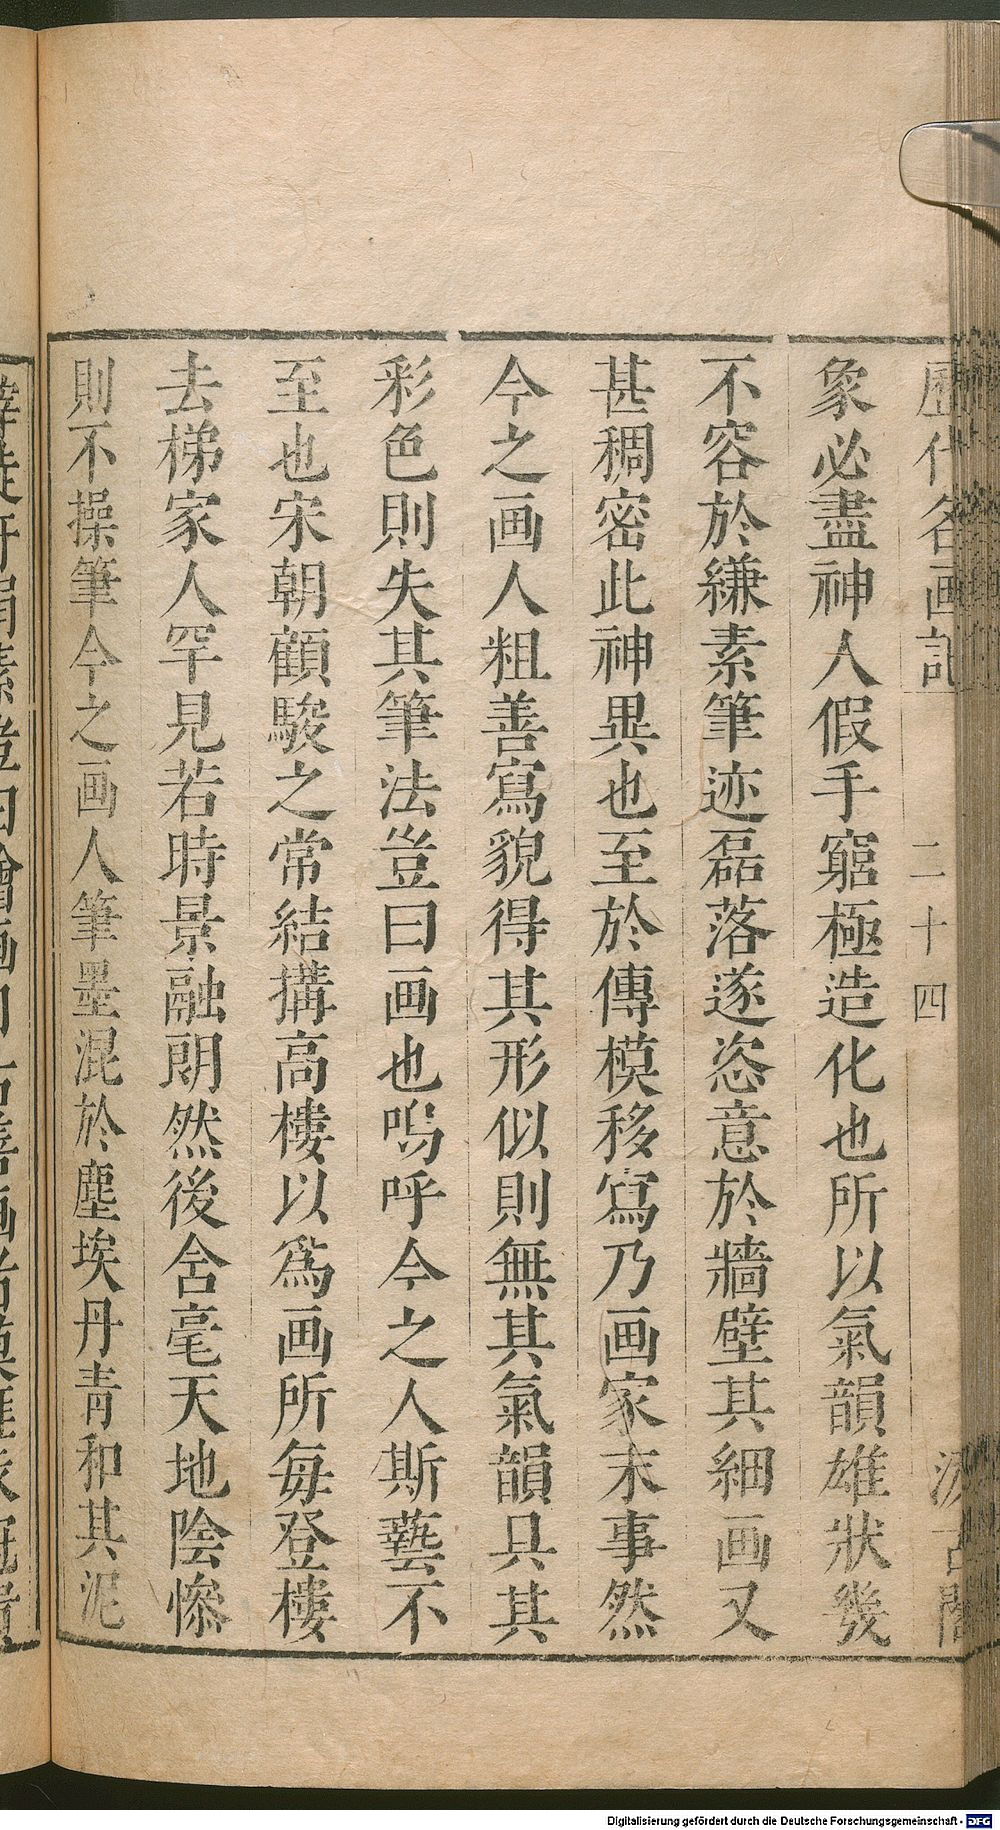 歷代名画記 二十四 汲古閣
象必盡神人假手窮極造化也所以氣韻雄狀幾
不容於縑素筆迹磊落遂恣意於牆壁其細画又
甚稠密此神異也至於傳模移寫乃画家末事然
今之画人粗善寫貌得其形似則無其氣韻具其
彩色則失其筆法豈曰画也嗚呼今之人斯藝不
至也宋朝顧駿之常結搆高樓以爲画所每登樓
去梯家人罕見若時景融朗然後含毫天地陰慘
則不操筆今之画人筆墨混於塵埃丹青和其泥
Digitalisierung gefördert durch die Deutsche Forschungsgemeinschaft - DFG